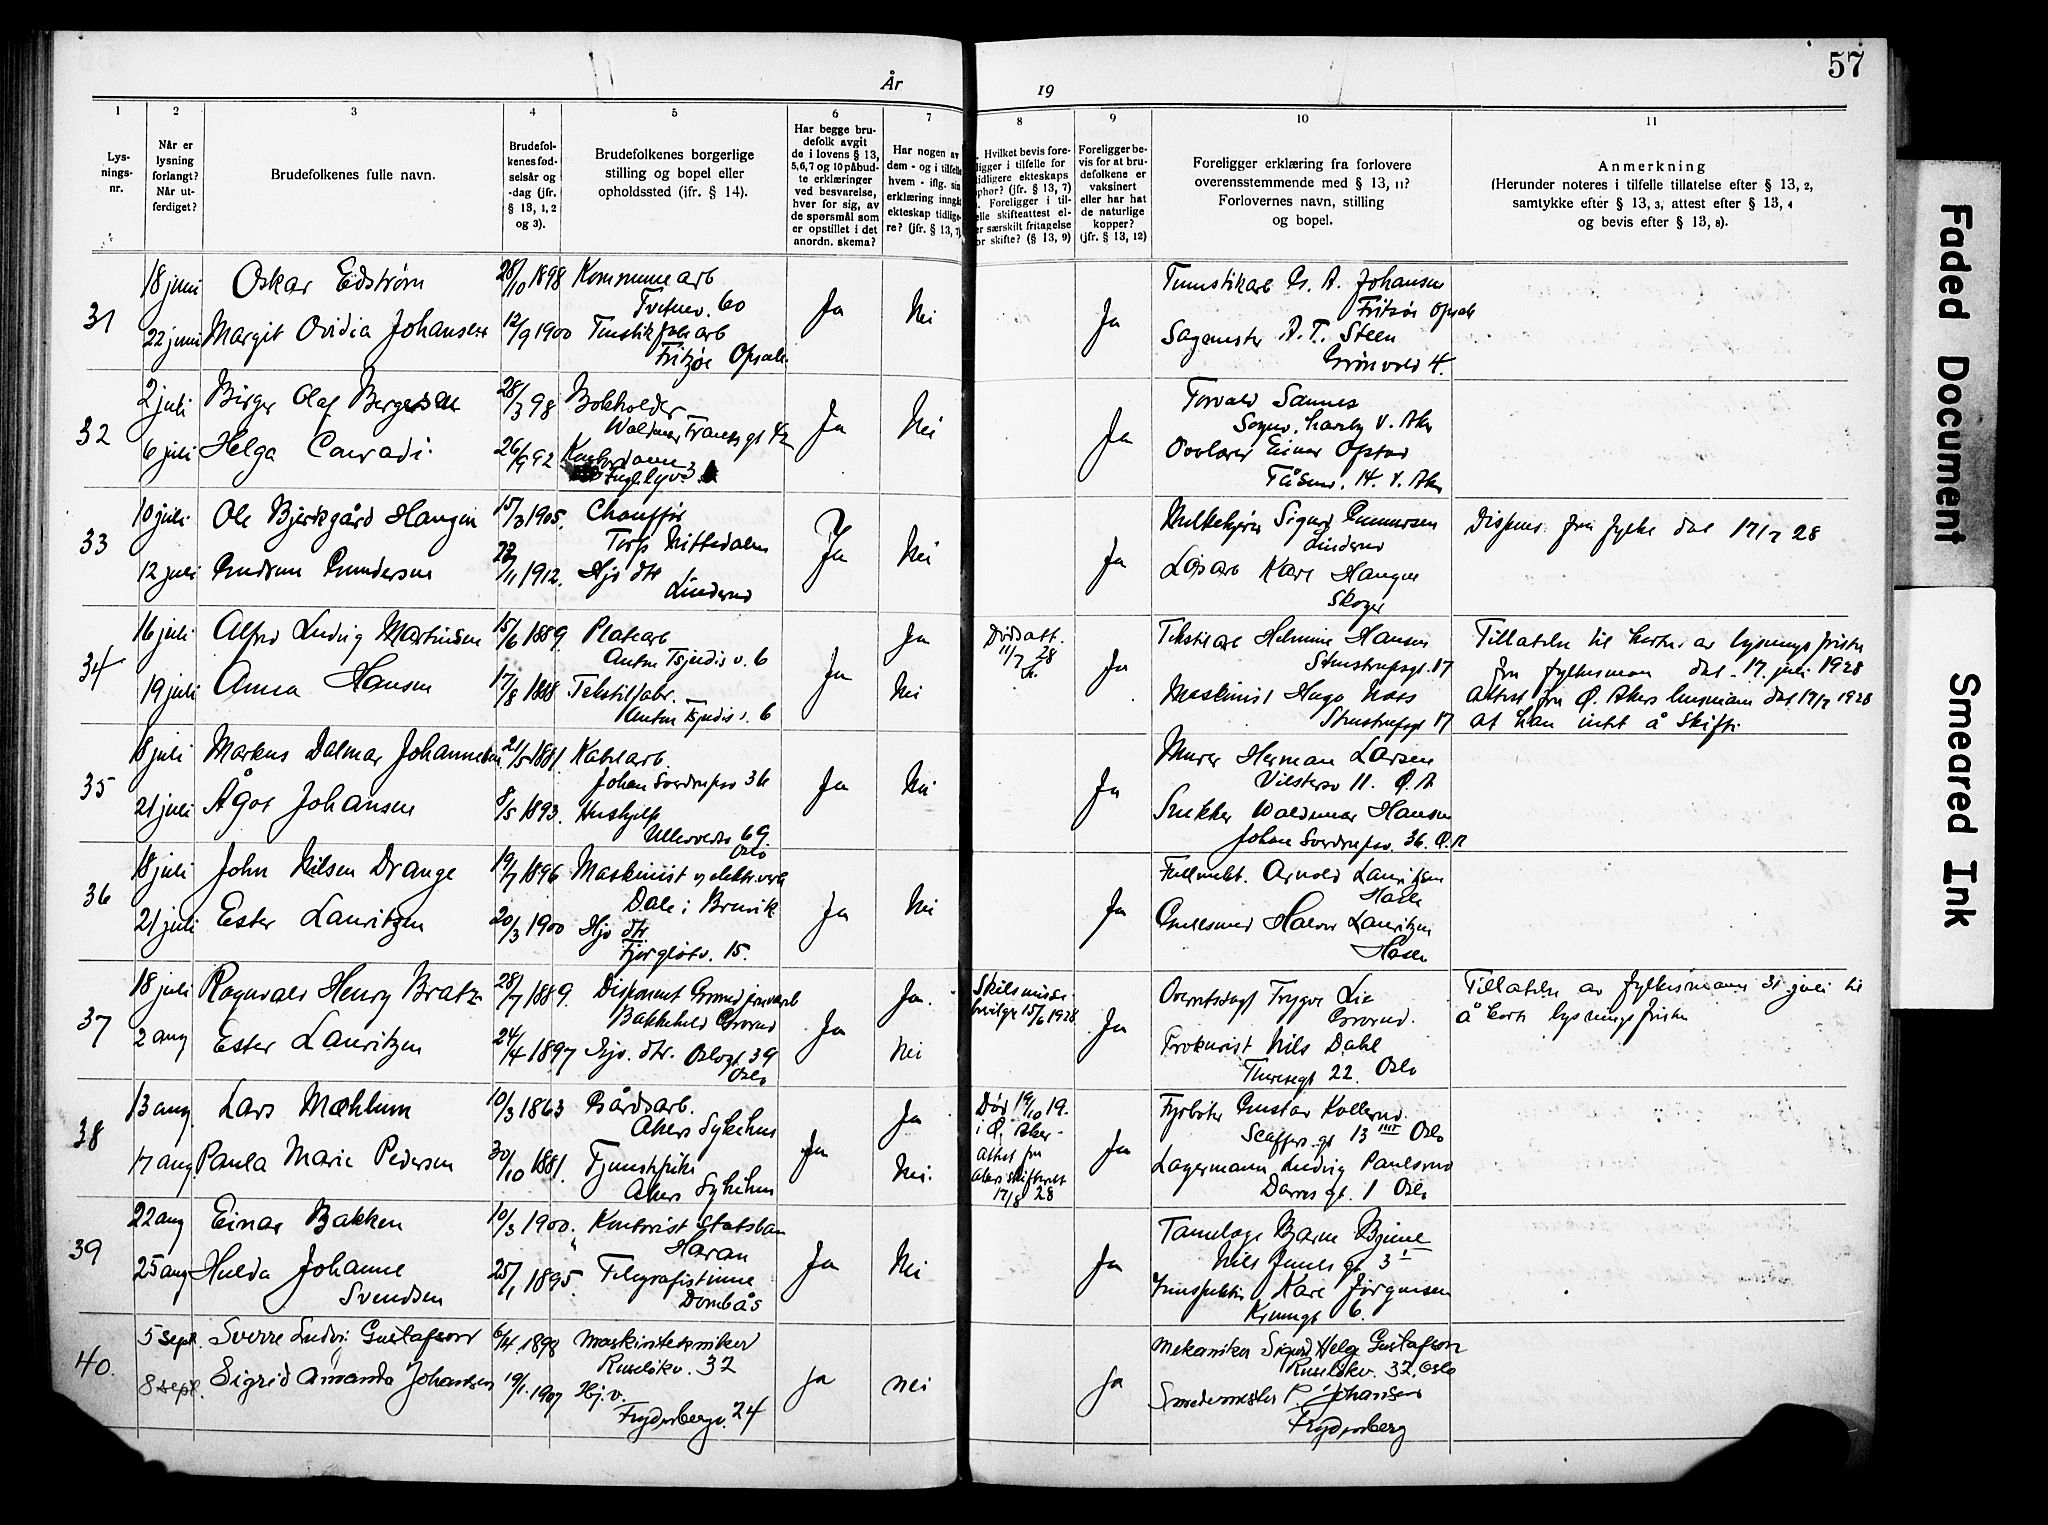 57
År
19
1
2
3
4
5
6
7
8
9
10
11
Lys-
nings-
nr.
Når er
lysning
forlangt?
Når ut-
ferdiget?
Brudefolkenes fulle navn.
Brudefol-
kenes fød-
selsår og
-dag (jfr.
§ 13, 1, 2
og 3).
Brudefolkenes borgerlige
stilling og bopel eller
opholdssted (jfr. § 14).
Har begge bru-
defolk avgit
de i lovens § 13,
5,6,7 og 10 påbud-
te erklæringer
ved besvarelse,
hver for sig, av
de spørsmål som
er opstillet i det
anordn. skema?
Har nogen av
dem - og i tilfelle
hvem - iflg. sin
erklæring inngåt
ekteskap tidlige-
re? (jfr. § 13, 7)
Hvilket bevis fore-
ligger i tilfelle for
tidligere ekteskaps
ophør? (jfr. § 13, 7)
Foreligger i til-
felle skifteattest el-
er særskilt fritagelse
for skifte? (§ 13, 9)
Foreligger be-
vis for at bru-
defolkene er
vaksinert
eller har hat
de naturlige
kopper?
(jfr. § 13, 12)
Foreligger erklæring fra forlovere
overensstemmende med § 13, 11?
Forlovernes navn, stilling
og bopel.
Anmerkning
(Herunder noteres i tilfelle tillatelse efter § 13, 2,
samtykke efter § 13, 3, attest efter § 13, 4
og bevis efter § 13, 8).
31
18 juni Oskar Eidstrøm 28/10 1898 Kommunearb
Tvetenv. 60
22 juni Margit Ovidia Johansen 12/9 1900
Fritzøe Opsal
Ja Nei Ja
Johansen
Fritzøe Opsal
A. T. Steen
Grønvold 4.
32
2 juli Birger Olaf Bergersen 28/3 98 Bokholder
6 juli Helga Conradi 26/9 92 Kontordame
Ja Nei Ja
Torvald Sannes
Sognv. V. Aker
Einar Opstad
Tåsenv. 14. V. Aker
33
10 juli Ole Bjerkgård Haugen 15/3 1905. Chauffør
Nittedalen
12 juli Gudrun Gundersen 22/11 1912. Hjv dtr
Linderud
Ja Nei Ja
Sigurd Gundersen
Linderud
Karl Haugen
Skoger
Dispens. fra fylke dat 17/7 28
34
16 juli Alfred Ludvig Martinsen 15/6 1889. Platearb
Anton Tsjudis v. 6
19 juli Anna Hansen 17/8 1888 Tekstilarb.
Anton Tsjudis v. 6
Ja Ja
Nei
Dødsatt.
11/7 28
Ja
Tekstilarb Helmine Hansen
Stenstrupsgt. 17
Maskinist Hugo Næss
Stenstrupsgt 17
Tillatelse til korter av lysningsfristen
fra fylkesmann dat. 17. juli 1928
Attest fra Ø. Akers lensmann dat 17/7 1928
at han intet å skifte
35
18 juli Markus Dalmar Johannesen 21/5 1881. Kabelarb.
Johan Sverdrupsv 36
21 juli Ågot Johansen 8/5 1893. Hushjelp
Ullevoldsv 69
Oslo
Ja Nei Ja
Murer Herman Larsen
11. Ø. A
Snekker Waldemar Hansen
Johan Sverdrupsv. 36. Ø. A
36
18 juli John Nilsen Drange 19/7 1896 Maskinist v elektr.verk
Dale i Bruvik
21 juli Ester Lauritzen 20/3 1900 Hjv dtr
15.
Ja Nei Ja
Fullmekt. Arnold Lauritzen
Hasle
Gullsmed Halvor Lauritzen
Hasle
37
18 juli Ragnvald Henry Bratz 28/7 1889. Disponent Grorud jernvarefb
Bakkehell Grorud
2 aug Ester Lauritzen 24/4 1897 Hjv. dtr. Oslogt 39
Oslo
Ja Ja.
Nei
Skilsmisse
bevilgn 15/6 1928
Ja
Overrettssagf Trygve Lie
Grorud.
Prokurist Nils Dahl
Theresegt 22. Oslo
Tillatelse av fylkesmann 31 juli til
å korte lysningsfristen
38
13 aug. Lars Mæhlum 10/3 1863 Gårdsarb.
Akers Sykehus
17 aug. Paula Marie Pedersen 30/10 1881.
Akers Sykehus
Ja Ja
Nei.
Død 19/10 19.
i Ø. Aker -
attest fra
Aker skifterett
17/8 28
Ja
Fyrbøter Gustav Kollerud.
gt 13 Oslo
Lagermann Ludvig Paulsrud
Darres gt. 1 Oslo
39
22 aug Einar Bakken 10/3 1900. Kontorist Statsban
Haran
25 aug Hulda Johanne
Svendsen 25/1 1895. Telegrafistinne
Dombås
Ja Nei Ja
Bjarne
gt 3
Karl Jørgensen
6.
40.
5 sept. Sverre Ludv: Gustafson 6/4 1898 Maskintekniker
Ruseløkv. 32
8 sept. Sigrid Amanda Johansen 19/1. 1907 Hj. v.
Frydenbergv. 24
Ja Nei Ja
Mekaniker Sigurd Helge Gustafson
Ruseløkv. 32, Oslo
Smedemester P. Johansen
Frydenberg
Faded Document
Smeared Ink